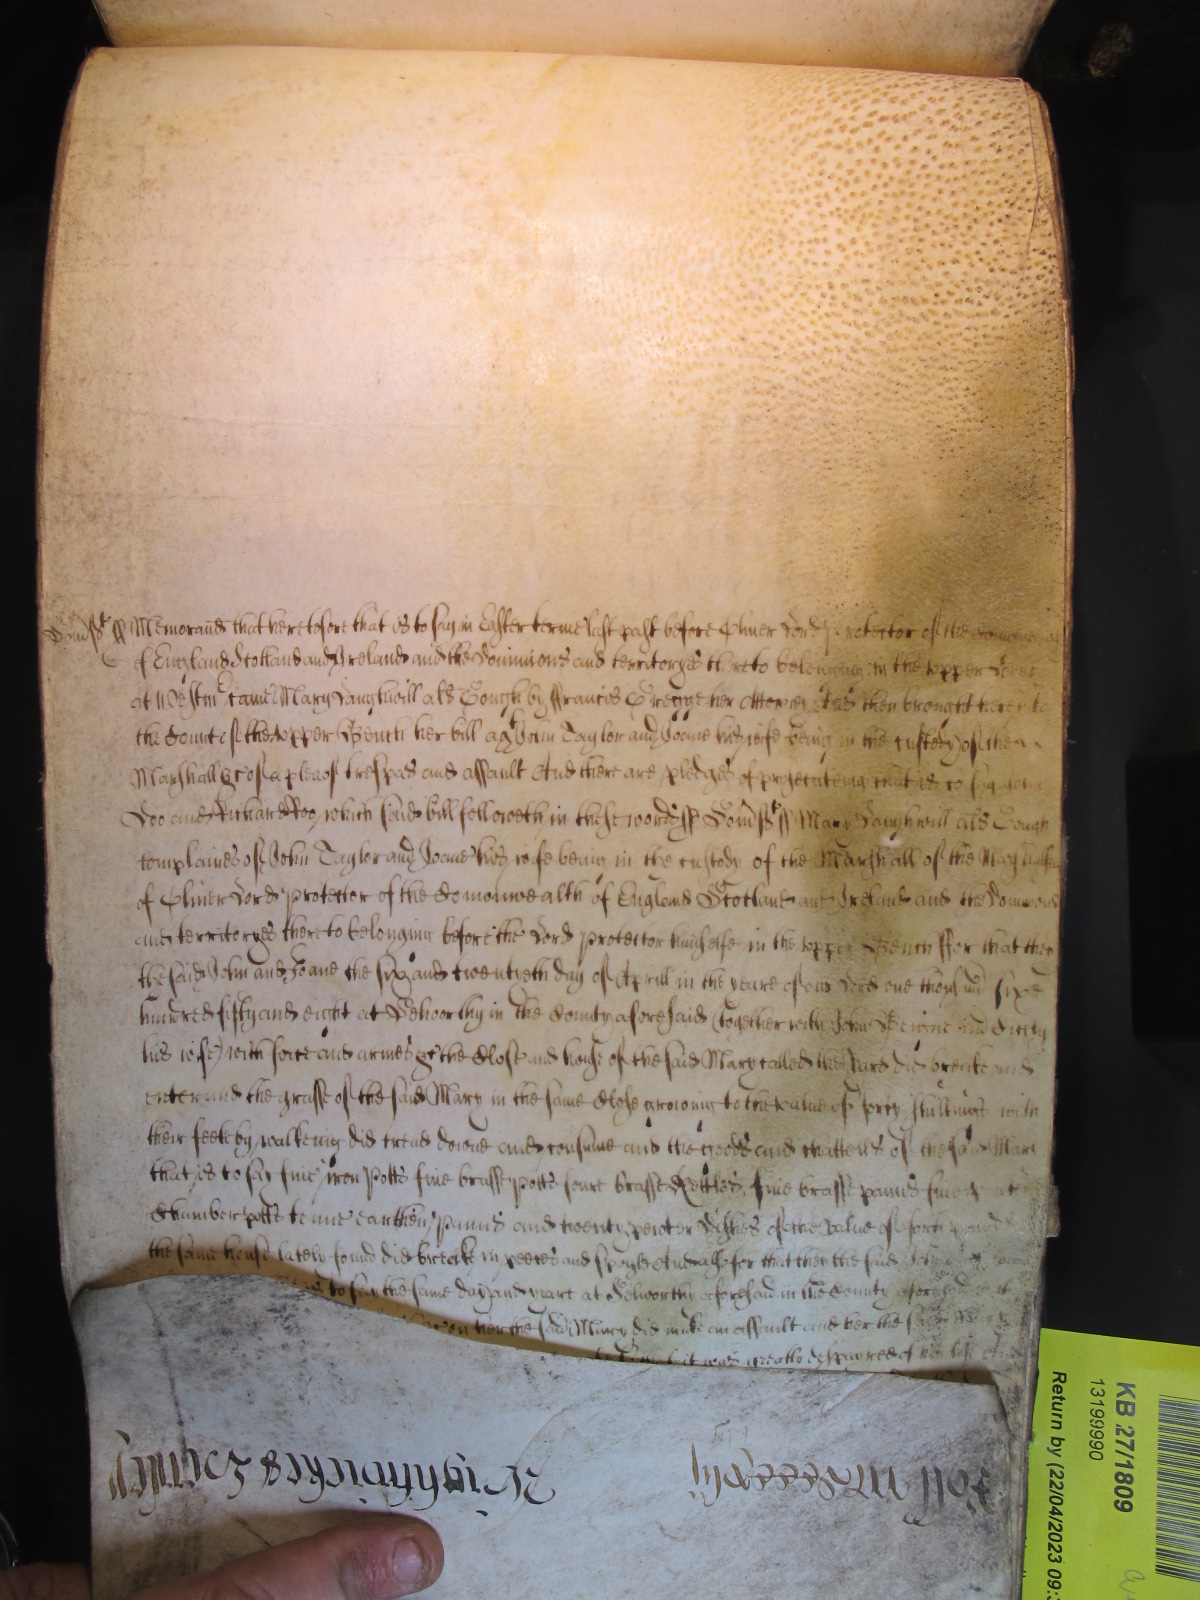 Somst ss Memorand that heretofore that is to say in Easter terme last past before Oliver Lord Protector of the Comonwealth
of England Scotland and Ireland and the Dominions and territoryes thereto belonging in the upper Bench
at Westm came Mary Langhwill als Gough by Francis Gregge her Attorney And then brought here into
the Court of the upper Bench her bill agt John Taylor and Joane his wife being in the custody of the
Marshall &c of a plea of trespas and assault And there are pledges of prosecuteing that is to say John
Doo and Richard Roo, which said bill followeth in these words ss Somst ss Mary Langhwill als Gough
complaines of John Taylor and Joane his wife being in the custody of the Marshall of the Marshalsea
of Oliver Lord Protector of the Comonwealth of England Scotland and Ireland and the Dominions
and territoryes thereto belonging before the Lord Protector himselfe in the upper Bench ffor that they
the said John and Joane the six and twentieth day of Aprill in the yeare of our Lord one thousand sixe
hundred fifty and eight at Selworthy in the County aforesaid (together with John and
his wife) with force and armes &c the Close and house of the said Mary called did breake and
enter and the grasse of the said Mary in the same Close growing to the value of forty shillings with
their feete by walkeing did tread downe and consume and the goods and chattells of the said Mary
that is to say five iron potts five brasse potts foure brasse Kettles, five brasse panns five
Chamber potts tenne earthen panns and twenty pewter dishes of the value of forty pounds
the same house lately found did breake in peeces and spoyle And also for that they the said John
to say the same day and yeare at Selworthy aforesaid in the County aforesaid
upon her the said Mary did make an assault and her the said Mary
it was greatly dispayred of her life
Roll MDCCCxliij
Wightwickes Zouch
KB 271809
13199990
Return by (22/04/2023 09: